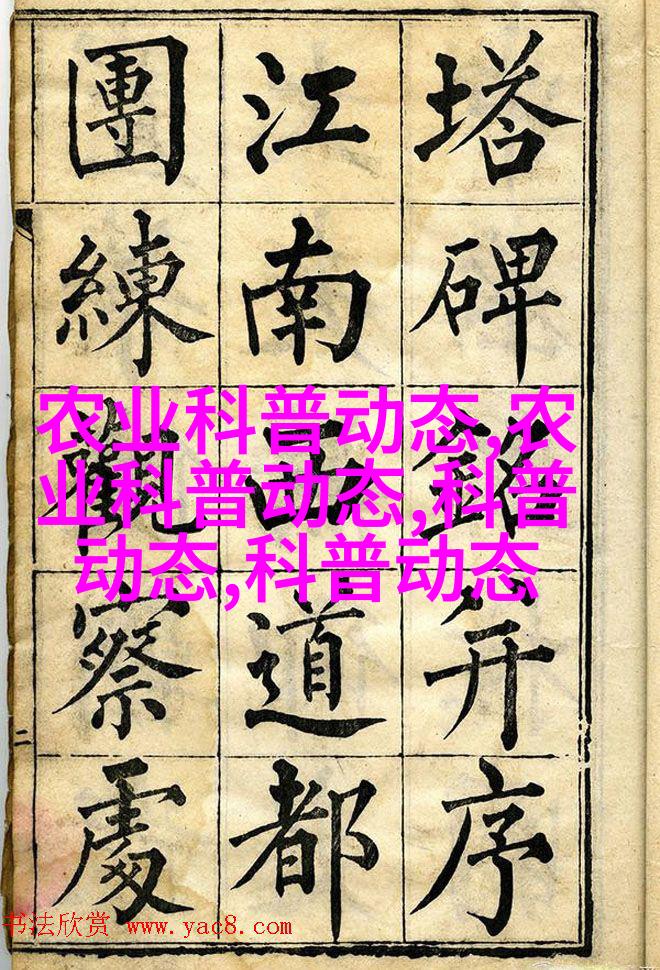 塔碑銘并序
江南西道都
團練觀察處
二
农业科普动态,农
业科普动态,科普
动态,科普动态
书法欣赏 www.yac8.com